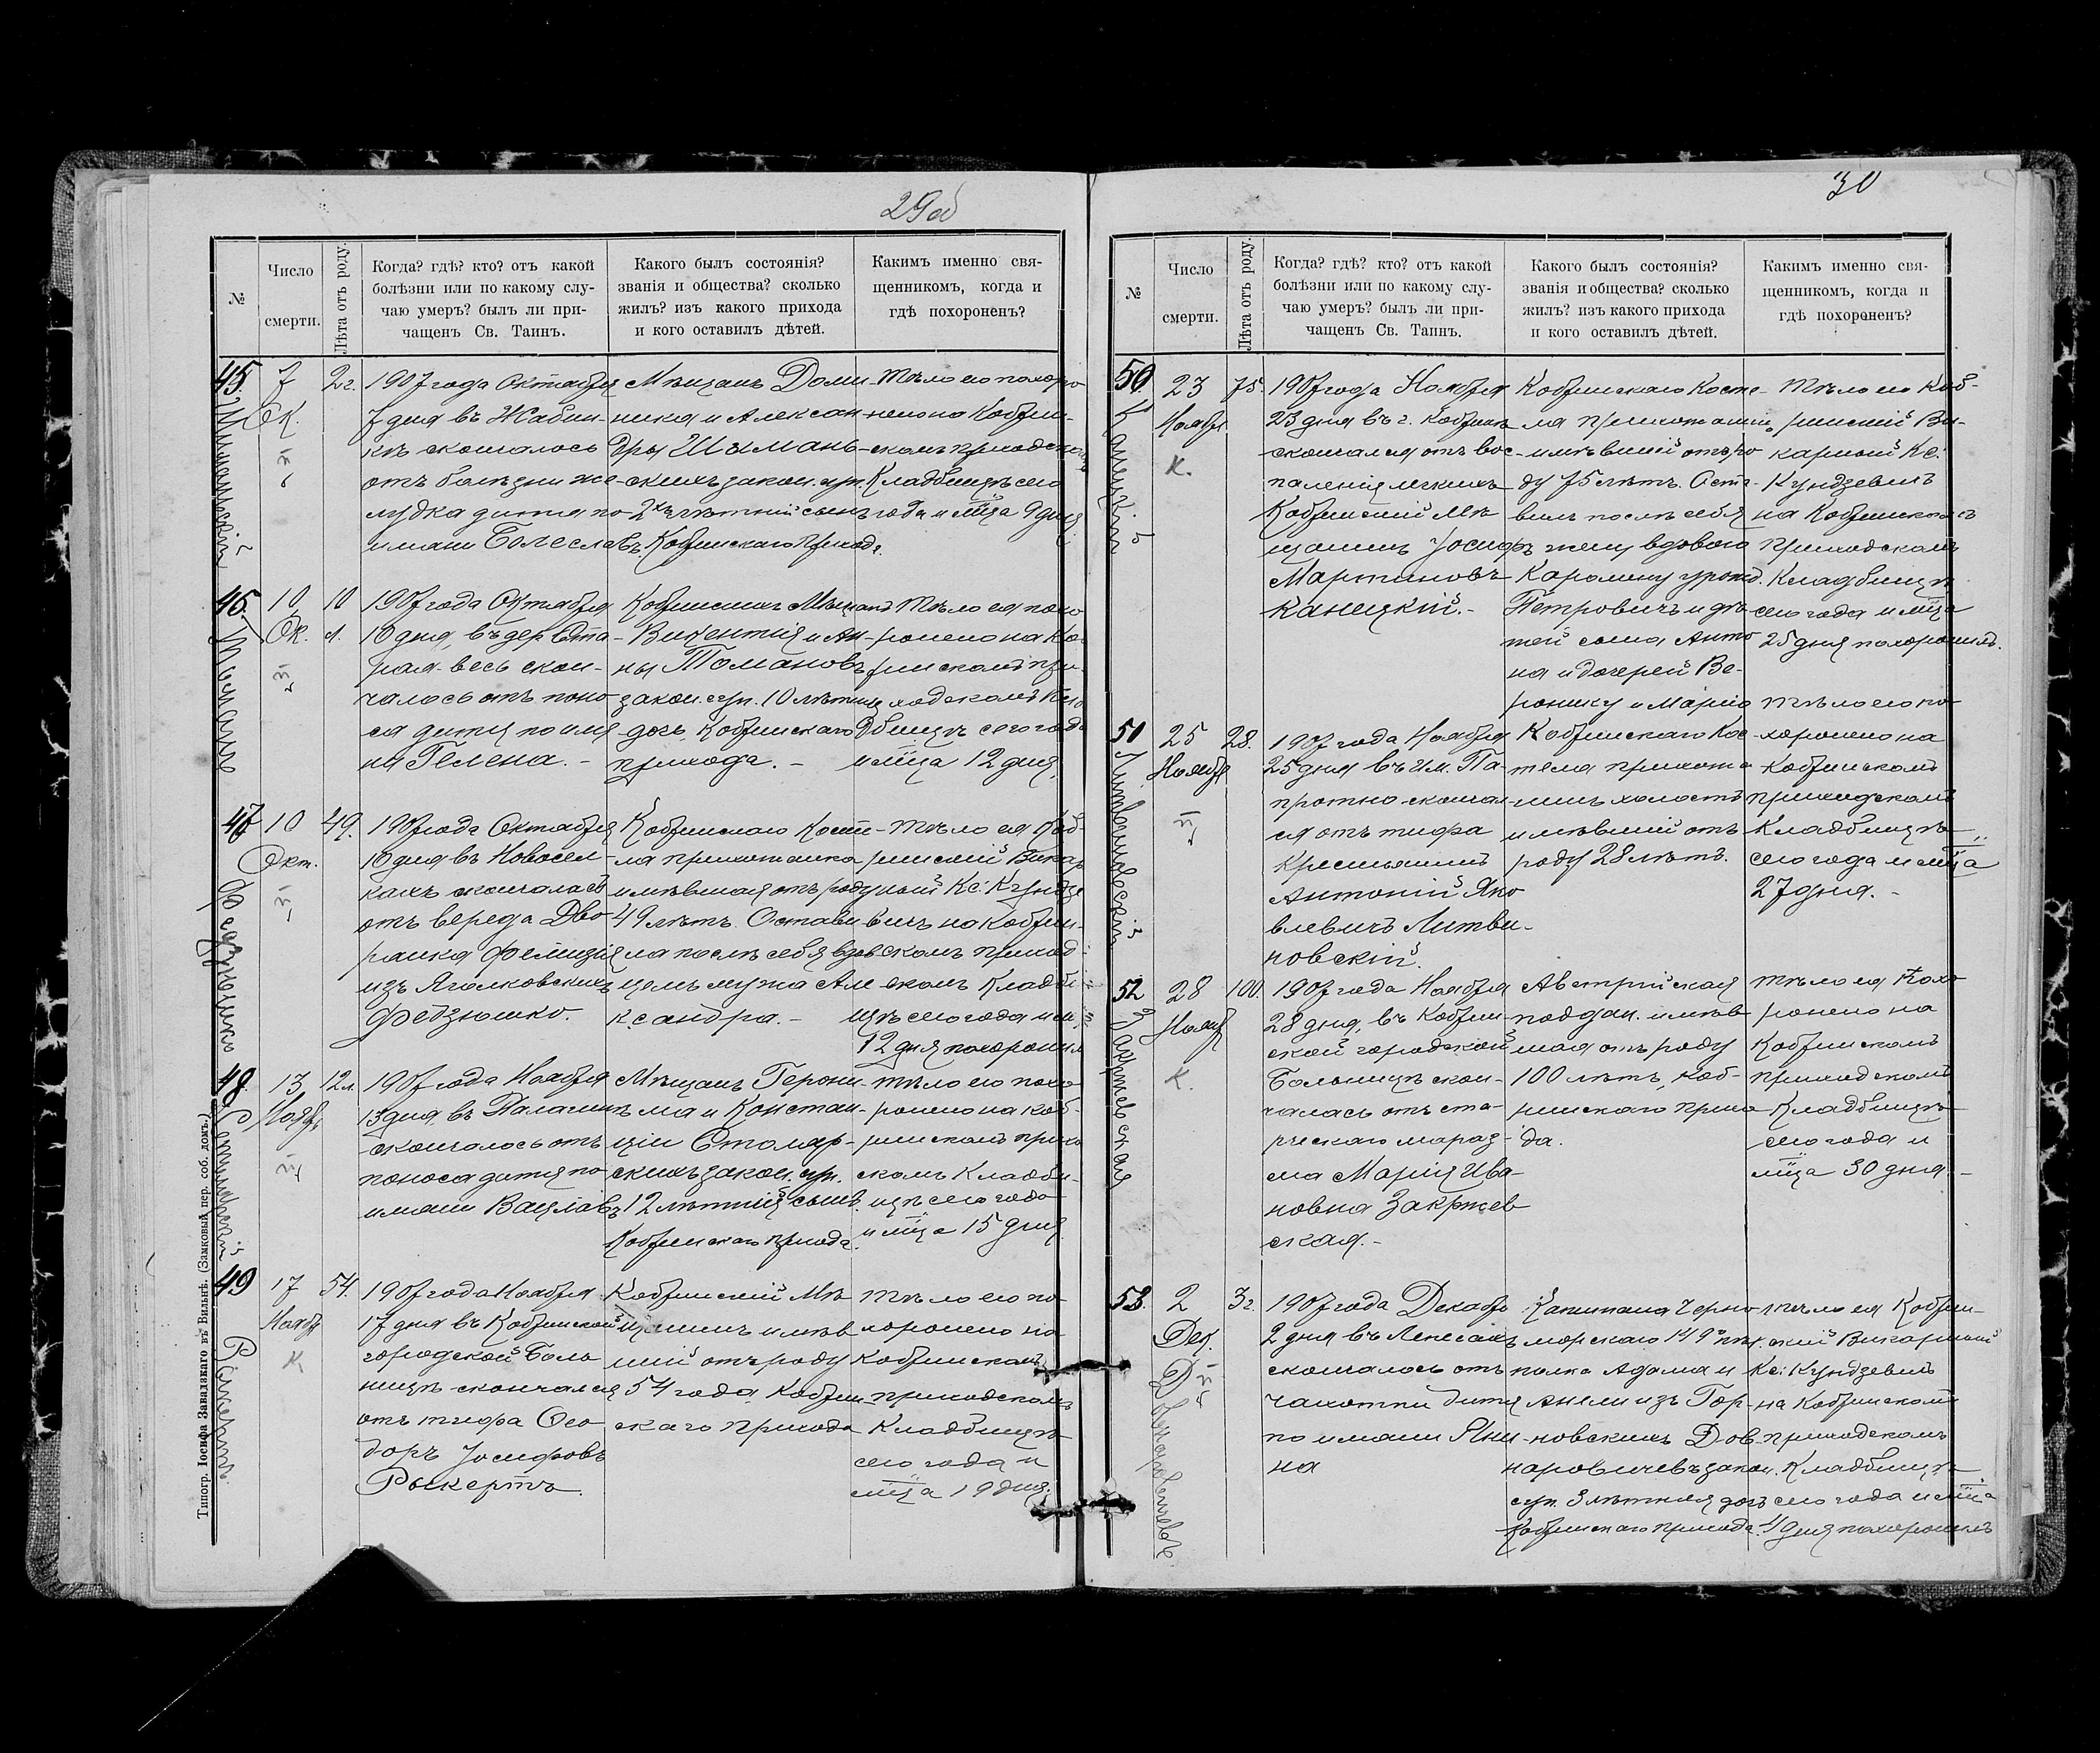 29об
№
Число
смерти.
Лѣта отъ роду.
Когда? гдѣ? кто? отъ какой
болѣзни или по какому слу-
чаю умеръ? былъ ли при-
чащенъ Св. Таинъ.
Какого былъ состоянія?
званія и общества? сколько
жилъ? изъ какого прихода
и кого оставилъ дѣтей.
Какимъ именно свя-
щенникомъ, когда и
гдѣ похороненъ?
45.
7
Ок.
2 г.
1907 года Октября
7 дня въ Жабин-
кѣ скончалось
отъ болѣзни же-
лудка дитя по
имени Болеславъ
Мѣщанъ Доми-
ника и Алексан-
дры Шымань-
скихъ закон. суп.
2хъ лѣтній сынъ
Кобринскаго Прихода.
Тѣло его похоро-
нено на Кобрин-
скомъ приходском
Кладбищѣ сего
года и мѣсца 9 дня
46.
10
Ок.
10
л.
1907 года Октября
10 дня, въ дер. Ста-
рая-весь скон-
чалось отъ поно-
са дитя по име-
ни Гелена. -
Кобринских Мѣщанъ
Викентія и Ан-
ны Томановъ
закон. суп. 10 лѣтняя
дочь, Кобринскаго
прихода. -
Тѣло ея похо-
ронено на Ко-
ринскомъ при-
ходскомъ Кла-
дбищѣ сего года
и мѣсца 12 дня
47
10
Окт.
49.
1907 года Октября
10 дня въ Новосел-
кахъ скончалась
отъ вереда Дво-
рянка Фелиція
изъ Яголковскихъ
Федзюшко.
Кобринскаго Косте-
ла прихожанка
имѣвшая отъ роду
49 лѣтъ. Остави-
ла послѣ себя вдов-
цемъ мужа Але-
ксандра. -
Тѣло ея Коб-
ринскій Викар-
ный Кс: Кундзе-
вичъ на Кобрин-
скомъ приход-
скомъ Кладби-
щѣ сего года и м.
12 дня похоронилъ
48.
13
Нояб.
12 л.
1907 года Ноября
13 дня, въ Палагинѣ
скончалось отъ
поноса дитя по
имени Вацлавъ
Мѣщанъ Герони-
ма и Констан-
ціи Столяр-
скихъ закон. суп.
12 лѣтній сынъ.
Кобринскаго Прихода.
Тѣло его похо-
ронено на Коб-
ринскомъ прихо-
скомъ Кладби-
щѣ сего года
и мѣсца 15 дня
49
17
Ноябр
54.
1907 года Ноября
17 дня въ Кобринской
городской Боль-
ницѣ скончался
отъ тифа Ѳео-
доръ Іосифовъ
Рыкертъ.
Кобринскій Мѣ-
щанинъ имѣв-
шій отъ роду
54 года, Кобрин-
скаго Прихода
Тѣло его по-
хоронено на
Кобринскомъ
приходскомъ
Кладбищѣ
сего года и
мѣсца 19 дня.
Типогр. Іосифа Завадзкаго въ Вильнѣ. (Замковый пер. соб. домъ.)
30
№
Число
смерти.
Лѣта отъ роду.
Когда? гдѣ? кто? отъ какой
болѣзни или по какому слу-
чаю умеръ? былъ ли при-
чащенъ Св. Таинъ.
Какого былъ состоянія?
званія и общества? сколько
жилъ? изъ какого прихода
и кого оставилъ дѣтей.
Какимъ именно свя-
щенникомъ, когда и
гдѣ похороненъ?
50
Канецкій
23
Ноября
К.
75.
1907 года Ноября
23 дня въ г. Кобринѣ
скончался отъ вос-
паленія легкихъ
Кобринскій Мѣ-
щанинъ Іосифъ
Мартиновъ
Канецкій. -
Кобринскаго Косте-
ла прихожанинъ,
имѣвшій отъ ро-
ду 75 лѣтъ. Оста-
вилъ послѣ себя
жену вдовою
Каролину урожд.
Петровичъ и дѣ-
тей сына Анто-
на и дочерей Ве-
ронику и Марію
Тѣло его Коб-
ринскій Ви-
карный Кс:
Кундзевичъ
на Кобринскомъ
Приходскомъ
Кладбищѣ
сего года и мѣсца
25 дня похоронилъ.
51
Литвиновскій
25
Ноября
28.
1907 года Ноября
25 дня въ им. Па-
протно скончал-
ся отъ тифа
Крестьянинъ
Антоній Яко-
влевичъ Литви-
новскій.
Кобринскаго Кос-
тела прихожа-
нинъ холостъ
имѣвшій отъ
роду 28 лѣтъ.
Тѣло его по-
хоронено на
Кобринскомъ
приходскомъ
Кладбищѣ
сего года и мѣсца
27 дня. -
52
Закржевская
28
Нояб
К.
100.
1907 года Ноября
28 дня, въ Кобрин-
ской городской
Больницѣ скон-
чалась отъ ста-
рческаго мараз-
ма Марія Ива-
новна Закржев-
ская. -
Австрійская
поддан. имѣв-
шая отъ роду
100 лѣтъ, Коб-
ринскаго прихо-
да.
Тѣло ея похо-
ронено на
Кобринскомъ
приходскомъ
Кладбищѣ
сего года и
мѣсца 30 дня. -
53.
2
Дек.
3 г.
1907 года Декабр.
2 дня въ Лепесахъ
скончалось отъ
чахотки дитя
по имени Яни-
на
Капитана Черно-
морскаго 149го пѣх.
полка Адама и
Анели изъ Гор-
новскихъ Дов-
наровичевъ закон.
суп. 3 лѣтняя дочь
Кобринскаго прихода.
Тѣло ея Кобрин-
скій Викарный
Кс: Кундзевичъ
на Кобринскомъ
приходскомъ
Кладбищѣ
сего года и мѣсца
4 дня похоронилъ